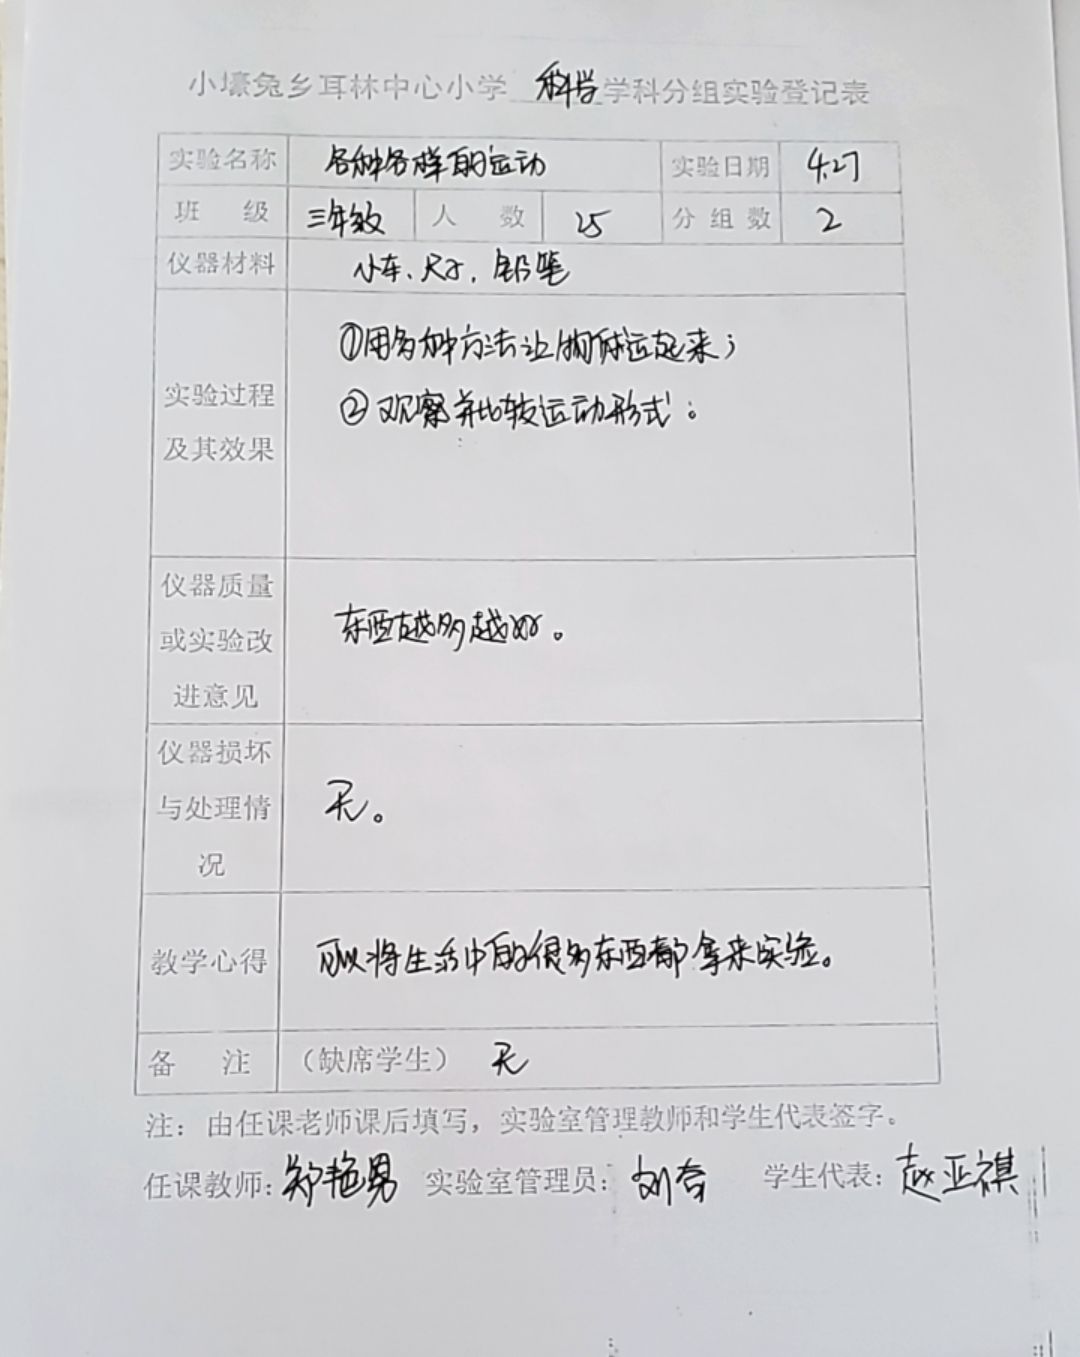 小壕兔乡耳林中心小学 科学 学科分组实验登记表
实验名称 各种各样的运动 实验日期 4.27
班 级 三年级 人 数 25 分组数 2
仪器材料 小车、尺子, 铅笔
实验过程
及其效果
①用多种方法让物体运起来;
②观察并比较运动形式。
仪器质量
或实验改
进意见
东西越多越好。
仪器损坏
与处理情
况
无。
教学心得 可以将生活中的很多东西都拿来实验。
备 注 (缺席学生) 无
注: 由任课老师课后填写,实验室管理教师和学生代表签字。
任课教师: 郑艳男 实验室管理员: 刘 学生代表: 赵亚祺